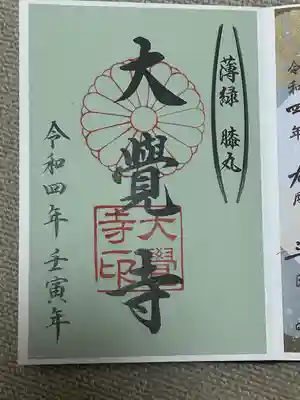 薄緑 膝丸
大覺寺
大覺
寺印
令和四年 壬寅年
令和四年